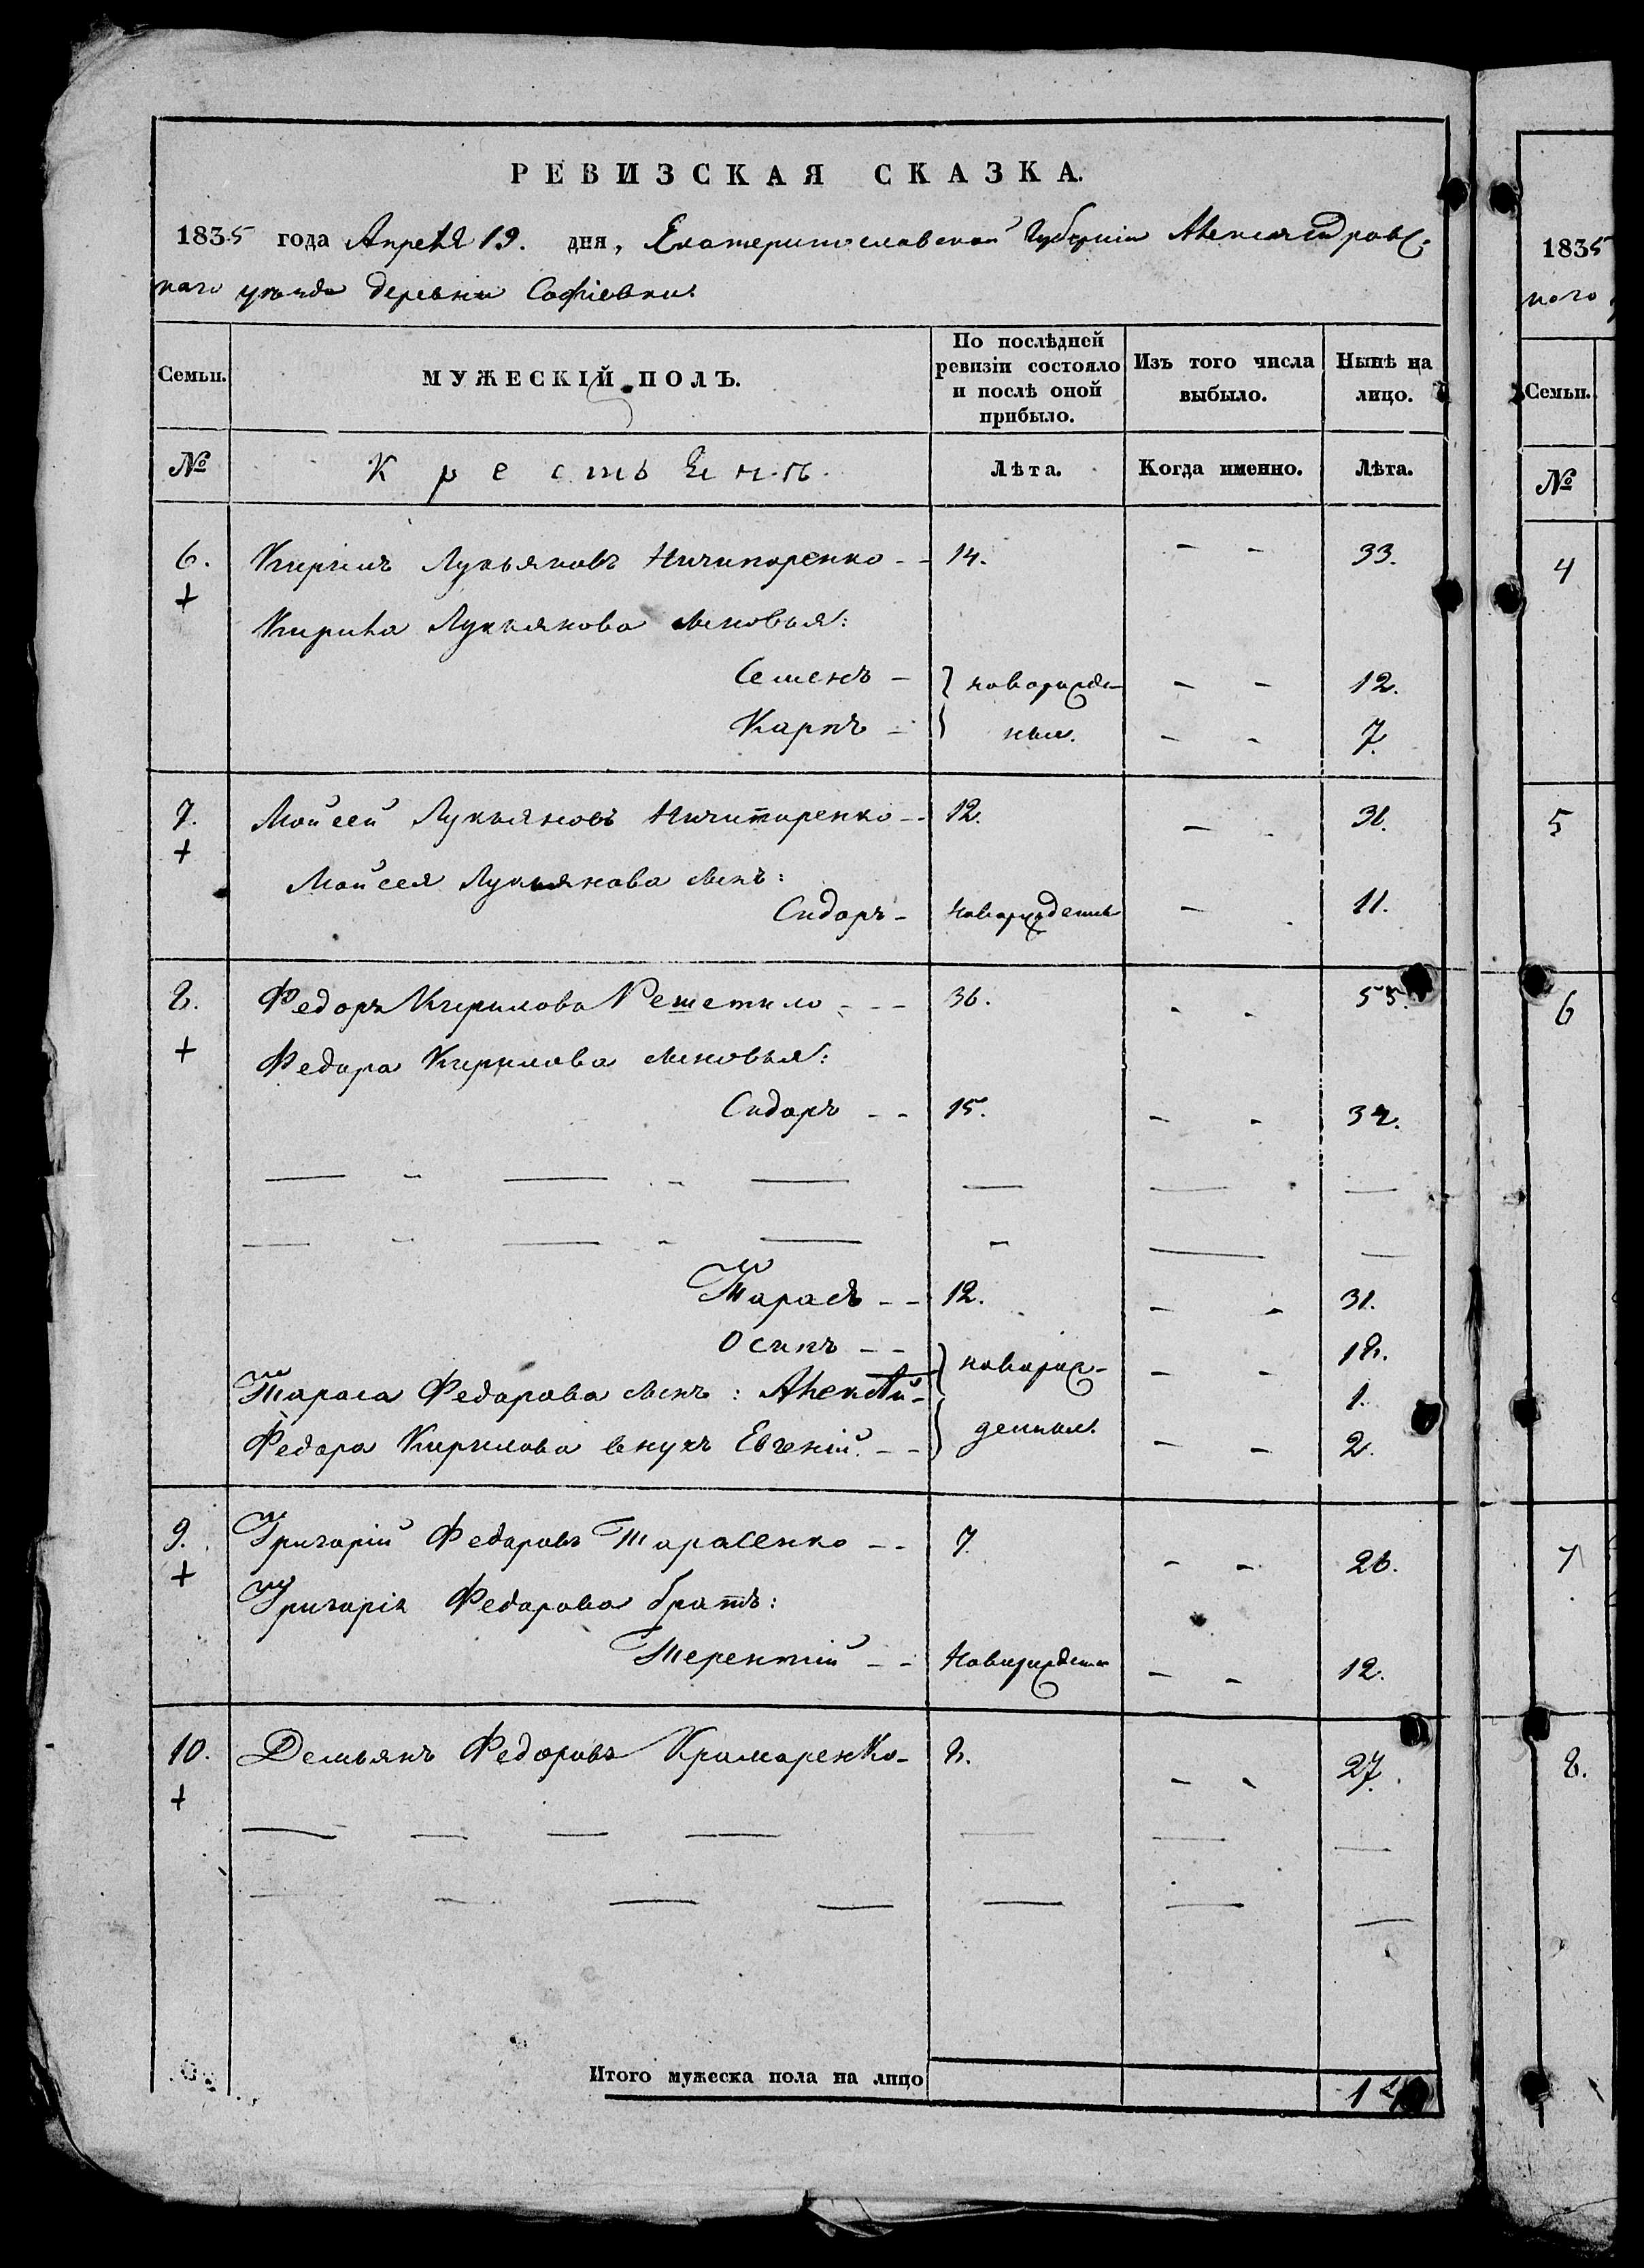 РЕВИЗСКАЯ СКАЗКА.
1835 года Апреля 19. дня, Екатеринославской Губерніи Александровс-
каго уѣзда деревни Софіевки.
Семьи.
МУЖЕСКІЙ ПОЛЪ.
По послѣдней ревизіи состояло и послѣ оной прибыло.
Изъ того числа выбыло.
Нынѣ на лицо.
№
Крестьянъ.
Лѣта.
Когда именно.
Лѣта.
6. Кирилъ Лукьяновъ Ничипоренко -- 14. - - 33.
+
Кирила Лукьянова сыновья:
Семенъ - } новорожде- - - 12.
Карпъ - } ныи. - - 7.
7. Мойсей Лукьяновъ Ничипоренко -- 12. - - 31.
+
Мойсея Лукьянова сынъ:
Сидоръ - Новорожденъ - - 11.
8. Федоръ Кирилова Решетило --- 36. - - 55.
+
Федора Кирилова сыновья:
Сидоръ -- 15. - - 34.
Тарасъ -- 12. - - 31.
Осипъ -- } новорож- - - 18.
Тараса Федорова сынъ: Алексѣй - 1.
Федора Кирилова внукъ Евгеній. -- } денныи. - - 2.
9. Григорій Федоровъ Тарасенко -- 7. - - 26.
+
Григорія Федорова братъ:
Терентій -- Новорожденъ - - 12.
10. Демьянъ Федоровъ Крамаренко - 8. - - 27.
+
Итого мужеска пола на лицо
14
1835
каго
Семьи.
№
4
5
6
7
8.